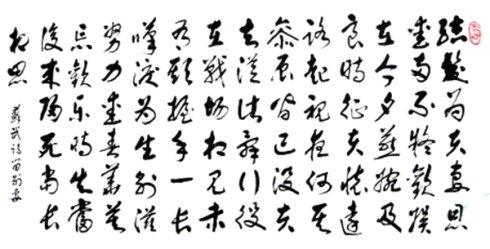 結髮為夫妻恩
愛兩不疑歡娛
在今夕燕婉及
良時征夫懷遠
路起視夜何其
參辰皆已沒去
去從此辭行役
在戰場相見未
有期握手一長
嘆淚為生別滋
努力愛春華莫
忘歡樂時生當
復來歸死當長
相思
蘇武詩留別妻